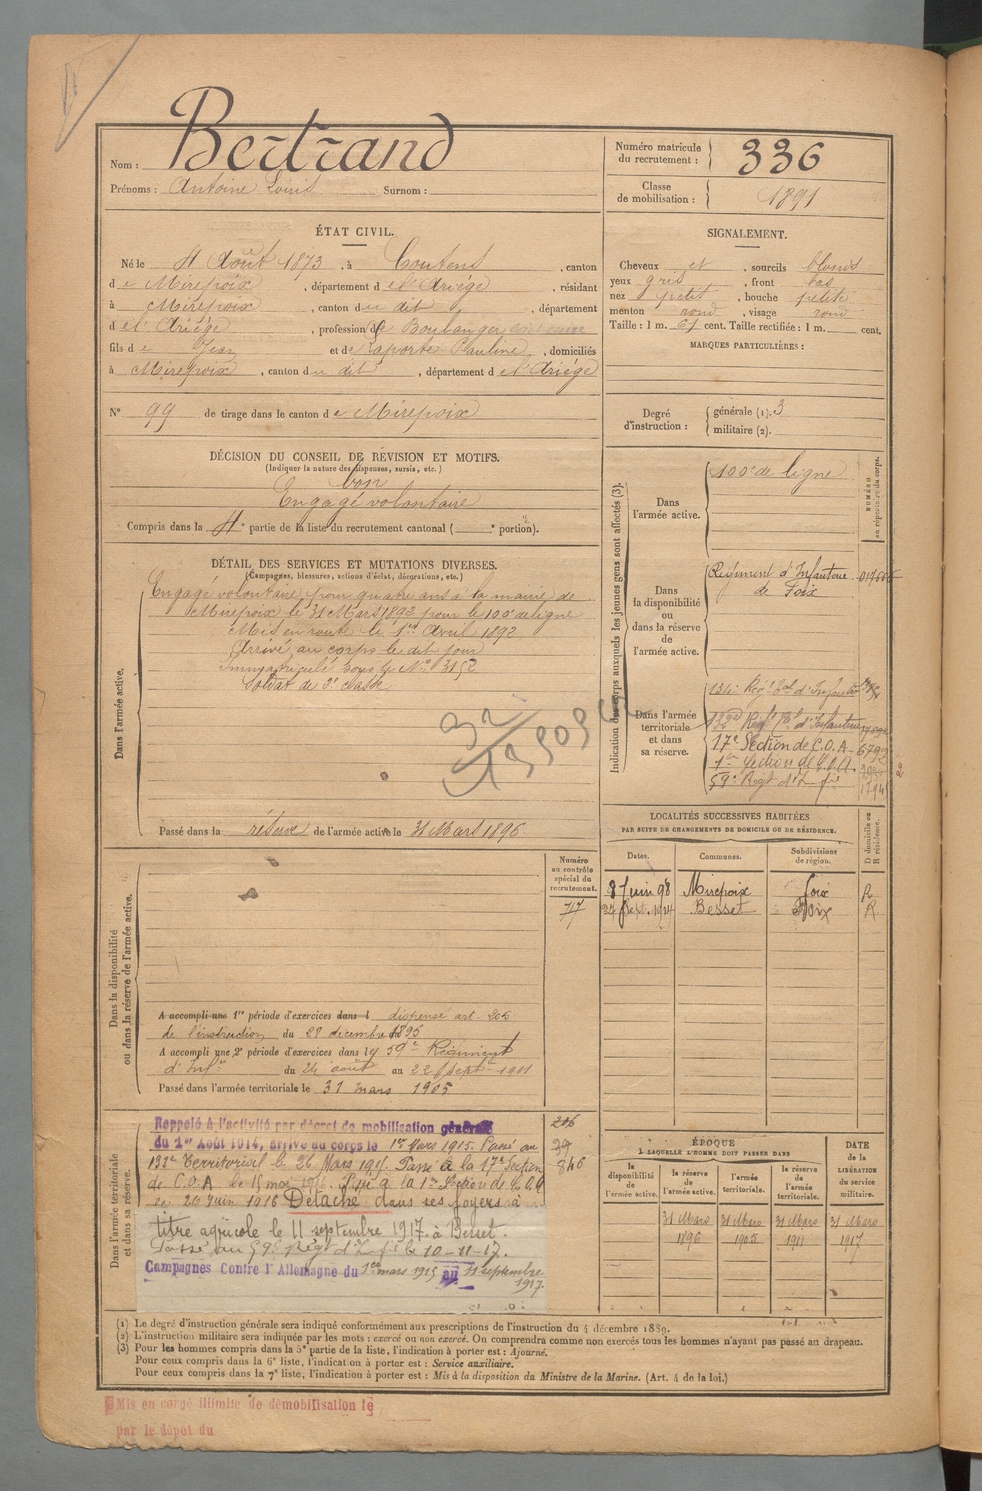 Nom : Bertrand
Prénoms : Antoine Louis Surnom :
Numéro matricule du recrutement : 336
Classe de mobilisation : 1891
ÉTAT CIVIL.
Né le 4 Août 1873, à Coutens, canton
de Mirepoix, département de l'Ariége, résidant
à Mirepoix, canton du dit, département
de l'Ariége, profession de Boulanger
fils de Jean et de Laporte Pauline, domiciliés
à Mirepoix, canton du dit, département de l'Ariége
N° 99 de tirage dans le canton de Mirepoix
SIGNALEMENT.
Cheveux et, sourcils blonds
yeux gris, front bas
nez petit, bouche petite
menton rond, visage rond
Taille : 1 m. 61 cent. Taille rectifiée : 1 m. cent.
MARQUES PARTICULIÈRES :
Degré d'instruction : générale (1). 3
militaire (2).
DÉCISION DU CONSEIL DE RÉVISION ET MOTIFS.
(Indiquer la nature des dispenses, sursis, etc.)
bon
Engagé volontaire
Compris dans la 4e partie de la liste du recrutement cantonal ( e portion).
DÉTAIL DES SERVICES ET MUTATIONS DIVERSES.
(Campagnes, blessures, actions d'éclat, décorations, etc.)
Dans l'armée active.
Engagé volontaire pour quatre ans à la mairie de
Mirepoix le 31 Mars 1892 pour le 100e de ligne
Mis en route le 1er Avril 1892
Arrivé au corps le dit jour
Immatriculé sous le No 3152
Soldat de 2e classe
32
Passé dans la réserve de l'armée active le 31 Mars 1896
Indication des corps auxquels les jeunes gens sont affectés (3).
NUMÉRO au répertoire du corps.
Dans l'armée active.
100e de ligne
Dans la disponibilité ou dans la réserve de l'armée active.
Régiment d'Infanterie
de Foix
Dans l'armée territoriale et dans sa réserve.
134e Regt Tal d'Infanterie
132e Regt Tal d'Infanterie
17e Section de C.O.A. 6792
1re Section de C.O.A.
59e Regt d'Inf ie
LOCALITÉS SUCCESSIVES HABITÉES
PAR SUITE DE CHANGEMENTS DE DOMICILE OU DE RÉSIDENCE.
D domicile ou R résidence.
Dates. Communes. Subdivisions de région.
8 Juin 98 Mirepoix Foix R
27 Sept. 1914 Besset Foix R.
Numéro au contrôle spécial du recrutement.
717
Dans la disponibilité ou dans la réserve de l'armée active.
A accompli une 1re période d'exercices dans l dispensé art. 205
de l'instruction du 28 décembre 1895
A accompli une 2e période d'exercices dans le 59e Régiment
d'Infie du 26 août au 22 septe 1901
Passé dans l'armée territoriale le 31 mars 1905
Dans l'armée territoriale et dans sa réserve.
Rappelé à l'activité par décret de mobilisation générale
du 1er Août 1914, arrivé au corps le 1er Mars 1915. Passé au
132e Territorial le 26 Mars 1915. Passé à la 17e Section
de C.O.A. le 15 mai 1916. Passé à la 1re Section de C.O.A
le 20 Juin 1916 Détaché dans ses foyers à
titre agricole le 11 septembre 1917. à Besset.
Passé au 59e Régt d'Inf ie le 10-11-17.
Campagnes Contre l'Allemagne du 1er mars 1915 au 11 septembre
1917.
846
ÉPOQUE
À LAQUELLE L'HOMME DOIT PASSER DANS
la disponibilité de l'armée active. la réserve de l'armée active. l'armée territoriale. la réserve de l'armée territoriale.
DATE de la LIBÉRATION du service militaire.
31 Mars 31 Mars 31 Mars 31 Mars
1896 1905 1911 1917
(1) Le degré d'instruction générale sera indiqué conformément aux prescriptions de l'instruction du 4 décembre 1889.
(2) L'instruction militaire sera indiquée par les mots : exercé ou non exercé. On comprendra comme non exercés tous les hommes n'ayant pas passé au drapeau.
(3) Pour les hommes compris dans la 5e partie de la liste, l'indication à porter est : Ajourné.
Pour ceux compris dans la 6e liste, l'indication à porter est : Service auxiliaire.
Pour ceux compris dans la 7e liste, l'indication à porter est : Mis à la disposition du Ministre de la Marine. (Art. 4 de la loi.)
Mis en congé illimité de démobilisation le
par le dépôt du